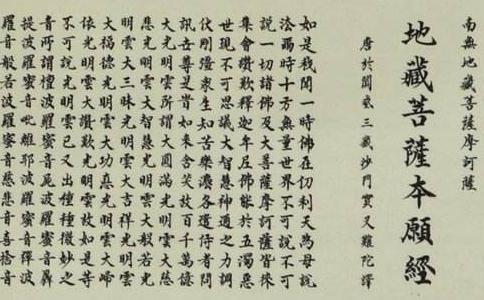 南無地藏菩薩摩訶薩
地藏菩薩本願經
唐於闐國三藏沙門實叉難陀譯
如是我聞一時佛在忉利天為母說
法爾時十方無量世界不可說不可
說一切諸佛及大菩薩摩訶薩皆來
集會讚歎釋迦牟尼佛能於五濁惡
世現不可思議大智慧神通之力調
伏剛彊眾生知苦樂濃各遣侍者問
訊世尊是時如來含笑放百千萬億
大光明雲所謂大圓滿光明雲大慈
悲光明雲大智慧光明雲大般若光
明雲大三昧光明雲大吉祥光明雲
大福德光明雲大功德光明雲大歸
依光明雲大讚歎光明雲放如是等
不可說光明雲已又出種種微妙之
音所謂檀波羅蜜音尸波羅蜜音羼
提波羅蜜音毗離耶波羅蜜音禪波
羅音般若波羅蜜音慈悲音喜捨音